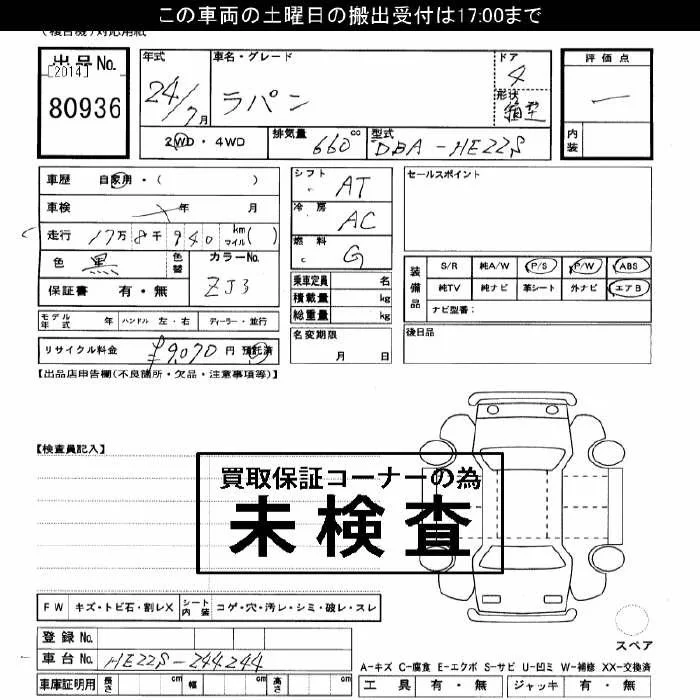 この車両の土曜日の搬出受付は17:00まで
(複合機)対応用紙
出品No.
[2014]
80936
年式
24/7月
車名・グレード
ラパン
ドア
4
形状
箱型
評価点
内装
2WD・4WD
排気量
660cc
型式
DBA-HE22S
車歴 自家用・( )
車検 年 月
走行 17万8千940 km マイル( )
色 黒
色替
カラーNo.
ZJ3
保証書 有・無
シフト
AT
冷房
AC
燃料
G
乗車定員 名
積載量 kg
総重量 kg
名変期限
月 日
セールスポイント
装備品
S/R 純A/W P/S P/W ABS
純TV 純ナビ 革シート 外ナビ エアB
ナビ型番:
後日品
モデル年式 年 ハンドル 左・右 ディーラー・並行
リサイクル料金 ¥9,070円 預託済
【出品店申告欄(不良箇所・欠品・注意事項等)】
【検査員記入】
買取保証コーナーの為
未検査
FW キズ・トビ石・割レX
シート内装 コゲ・穴・汚レ・シミ・破レ・スレ
登録No.
車台No. HE22S-244244
車庫証明用 長さ cm 幅 cm 高さ cm
スペア
A-キズ C-腐食 E-エクボ S-サビ U-凹ミ W-補修 XX-交換済
工具 有・無 ジャッキ 有・無